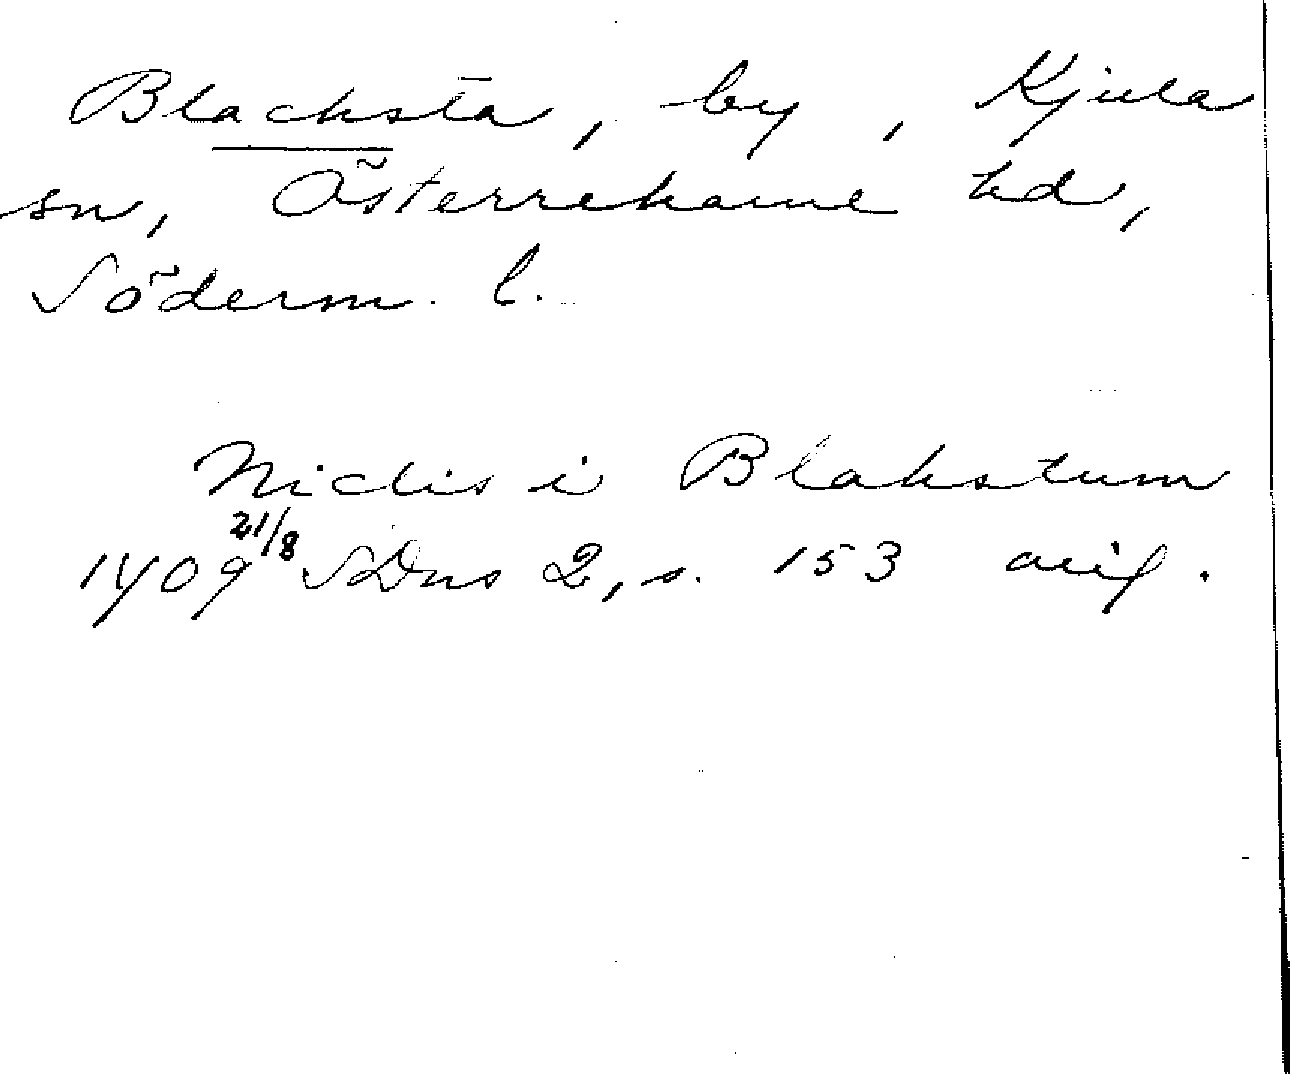 Blacksta, by, Kjula
sn, Österrekarne hd,
Söderm. l.
Niclis i Blakstum
1409 21/8 SDns 2, s. 153 avig.